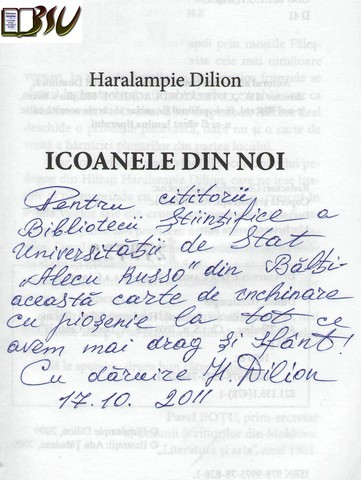 BSU
Haralampie Dilion
ICOANELE DIN NOI
Pentru cititorii
Bibliotecii Științifice a
Universității de Stat
„Alecu Russo" din Bălți-
această carte de închinare
cu pioșenie la tot ce
avem mai drag și sfânt!
Cu dăruire H. Dilion
17.10. 2011